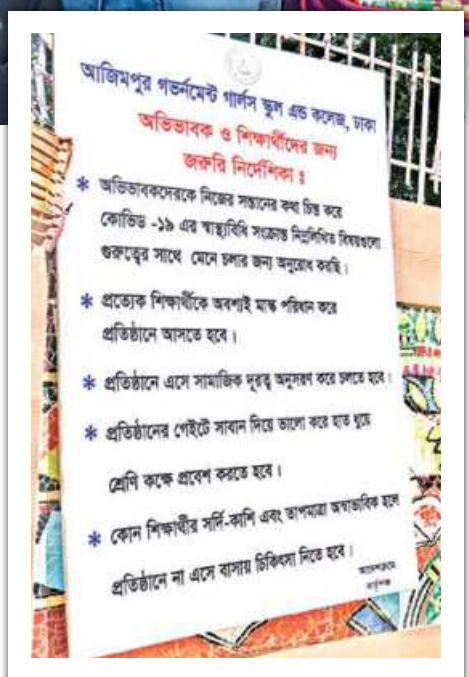 আজিমপুর গভর্নমেন্ট গার্লস স্কুল এন্ড কলেজ, ঢাকা
অভিভাবক ও শিক্ষার্থীদের জন্য
জরুরি নির্দেশিকা :
* অভিভাবকদেরকে নিজের সন্তানের কথা চিন্ত করে
কোভিড -১৯ এর স্বাস্থ্যবিধি সংক্রান্ত নিম্নলিখিত বিষয়গুলো
গুরুত্বের সাথে মেনে চলার জন্য অনুরোধ করছি।
* প্রত্যেক শিক্ষার্থীকে অবশ্যই মাস্ক পরিধান করে
প্রতিষ্ঠানে আসতে হবে।
* প্রতিষ্ঠানে এসে সামাজিক দূরত্ব অনুসরণ করে চলতে হবে।
* প্রতিষ্ঠানের গেইটে সাবান দিয়ে ভালো করে হাত ধুয়ে
শ্রেণি কক্ষে প্রবেশ করতে হবে।
* কোন শিক্ষার্থীর সর্দি-কাশি এবং তাপমাত্রা অস্বাভাবিক হলে
প্রতিষ্ঠানে না এসে বাসায় চিকিৎসা নিতে হবে।
আদেশক্রমে
কর্তৃপক্ষ